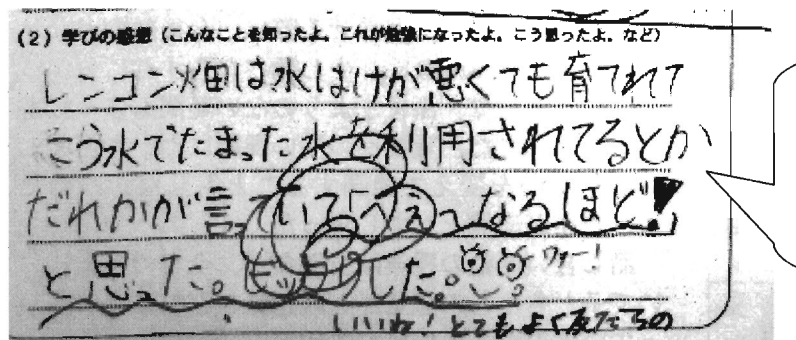 (2) 学びの感想（こんなことを知ったよ。これが勉強になったよ。こう思ったよ。など）
レンコン畑は水はけが悪くても育てれて
こう水でたまった水を利用されてるとか
だれかが言っていて「へぇ〜なるほど!」
と思った。ビックリした。ウォー!
いいね!とてもよく